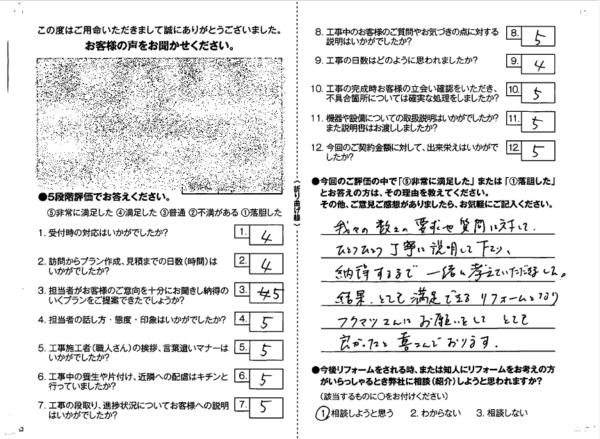 この度はご用命いただきまして誠にありがとうございました。
お客様の声をお聞かせください。
●5段階評価でお答えください。
⑤非常に満足した ④満足した ③普通 ②不満がある ①落胆した
1. 受付時の対応はいかがでしたか?
1. 4
2. 訪問からプラン作成、見積までの日数(時間)は
いかがでしたか?
2. 4
3. 担当者がお客様のご意向を十分にお聞きし納得の
いくプランをご提案できたでしょうか?
3. 5
4. 担当者の話し方・態度・印象はいかがでしたか?
4. 5
5. 工事施工者(職人さん)の挨拶、言葉遣いマナーは
いかがでしたか?
5. 5
6. 工事中の養生や片付け、近隣への配慮はキチンと
行っていましたか?
6. 5
7. 工事の段取り、進捗状況についてお客様への説明
はいかがでしたか?
7. 5
(折り曲げ線)
8. 工事中のお客様のご質問やお気づきの点に対する
説明はいかがでしたか?
8. 5
9. 工事の日数はどのように思われましたか?
9. 4
10. 工事の完成時お客様の立会い確認をいただき、
不具合箇所については確実な処理をしましたか?
10. 5
11. 機器や設備についての取扱説明はいかがでしたか?
また説明書はお渡ししましたか?
11. 5
12. 今回のご契約金額に対して、出来栄えはいかがで
したか?
12. 5
●今回のご評価の中で「⑤非常に満足した」または「①落胆した」
とお答えの方は、その理由を教えてください。
その他、ご意見ご感想がありましたら、お気軽にご記入ください。
我々の数々の要求や質問に対して、
ひとつひとつ丁寧に説明して下さり、
納得するまで一緒に考えていただきました。
結果、とても満足できるリフォームとなり
フクマツさんにお願いをして とても
良かったと喜こんでおります。
●今後リフォームをされる時、または知人にリフォームをお考えの方
がいらっしゃるとき弊社に相談(紹介)しようと思われますか?
(該当するものに○をお付けください)
1. 相談しようと思う 2. わからない 3. 相談しない